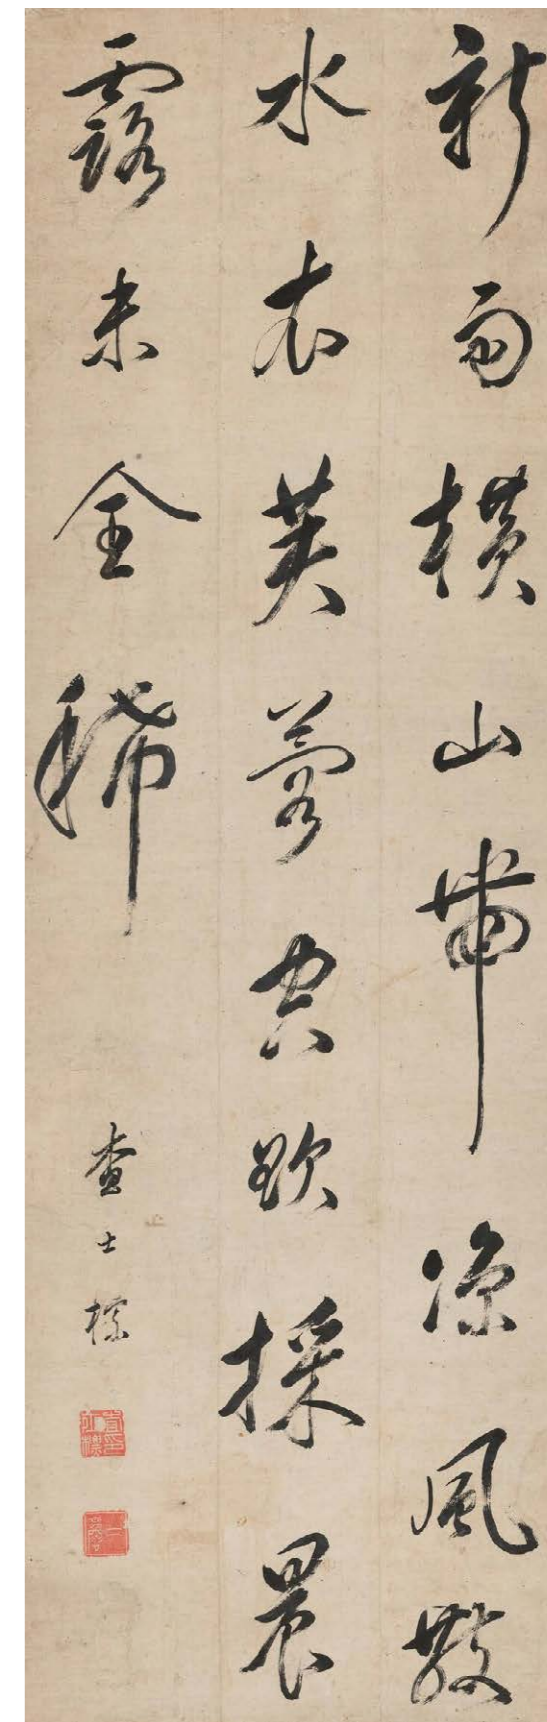 新雨橫山帶凉風散
水衣芙蓉欲採晨
露未全稀
查士標